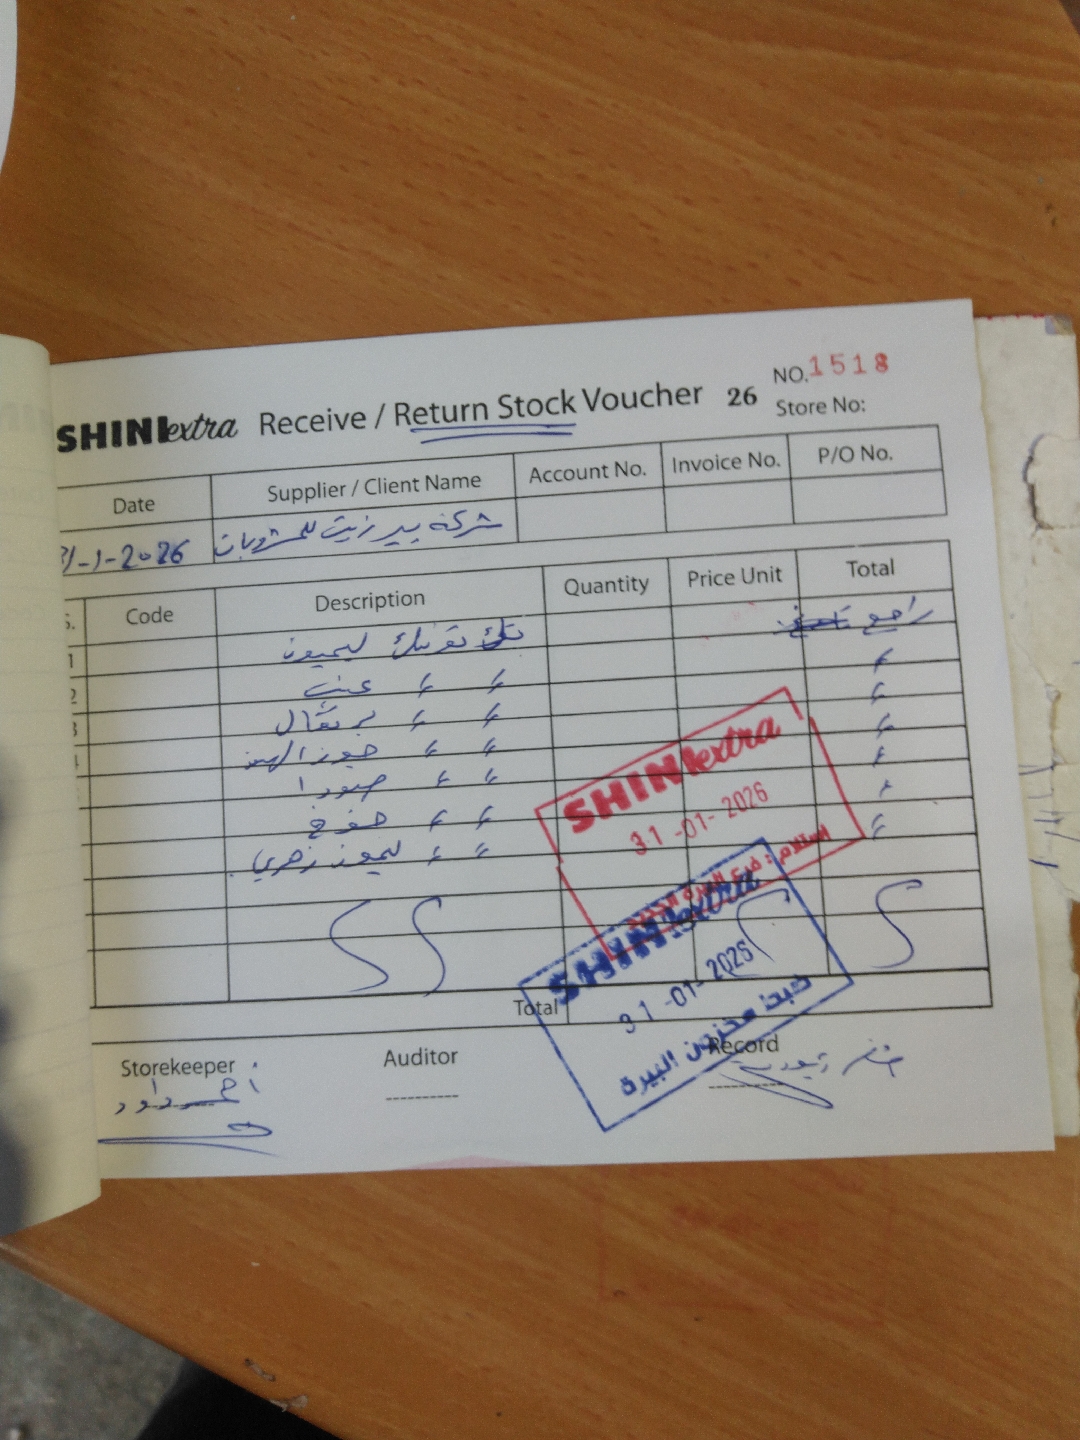 NO.1518
SHINI extra Receive / Return Stock Voucher 26
Store No:
Date Supplier / Client Name Account No. Invoice No. P/O No.
31-1-2026 شركة بير زيت للمشروبات
S. Code Description Quantity Price Unit Total
1 ليمون راجع
2 〃 〃 عنب 〃
3 〃 〃 برتقال 〃
〃 〃 جوز الهند 〃
〃 〃 صودا 〃
〃 〃 خوخ 〃
〃 〃 ليمون زهري 〃
Total
SHINI extra
31-01-2026
SHINI extra
31-01-2026
ضبط مخزون البيرة
Storekeeper Auditor Record
احمد داود